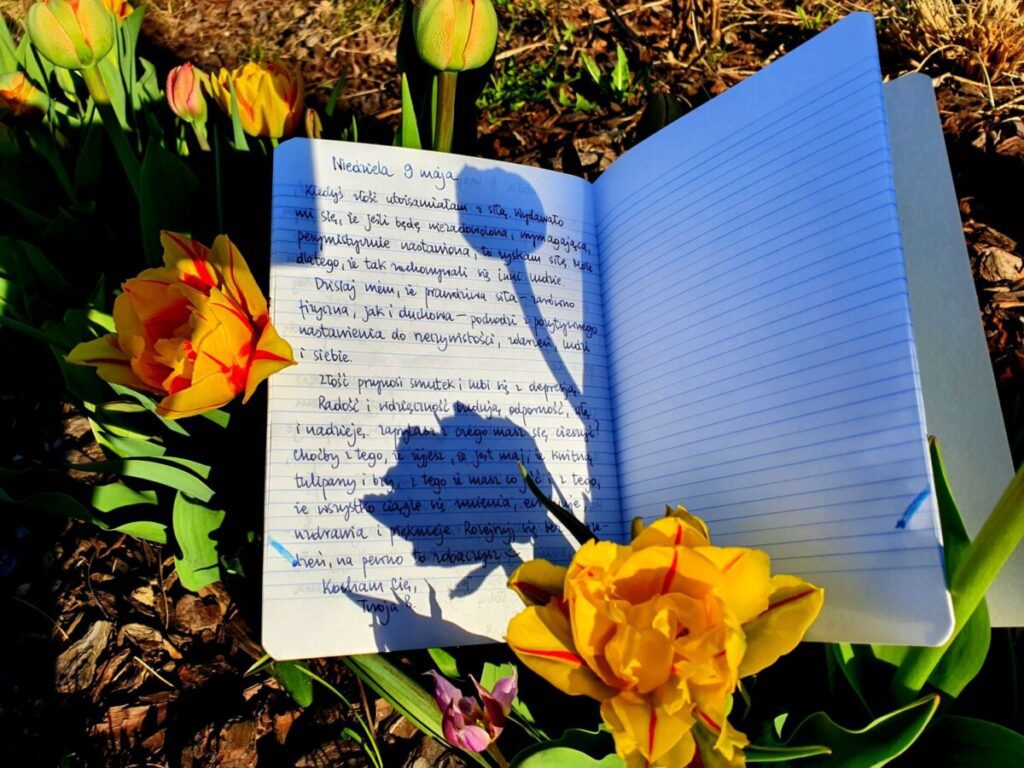 Niedziela 9 maja
Kiedyś złość utożsamiałam z siłą. Wydawało
mi się, że jeśli będę niezadowolona, wymagająca,
pesymistycznie nastawiona, to zyskam siłę. Może
dlatego, że tak zachowywali się inni ludzie.
Dzisiaj wiem, że prawdziwa siła - zarówno
fizyczna, jak i duchowa - pochodzi z pozytywnego
nastawienia do rzeczywistości, zdarzeń, ludzi
i siebie.
Złość przynosi smutek i lubi się z depresją.
Radość i wdzięczność budują odporność, siłę
i nadzieję. Zapytasz z czego masz się cieszyć?
Choćby z tego, że żyjesz, że jest maj, że kwitną
tulipany i bzy, z tego że masz co jeść i z tego,
że wszystko ciągle się zmienia,
uzdrawia i pięknieje. Rozejrzyj się
na pewno to zobaczysz
Kocham Cię,
Twoja B.